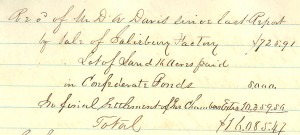 Rec'd of W D A Davis since last Report
by sale of Salisbury Factory $725.91
Lot of Sand Killers paid
in Confederate Bonds 5000.
In final Settlement of the Chamber 10,359.56
Total $16,085.47